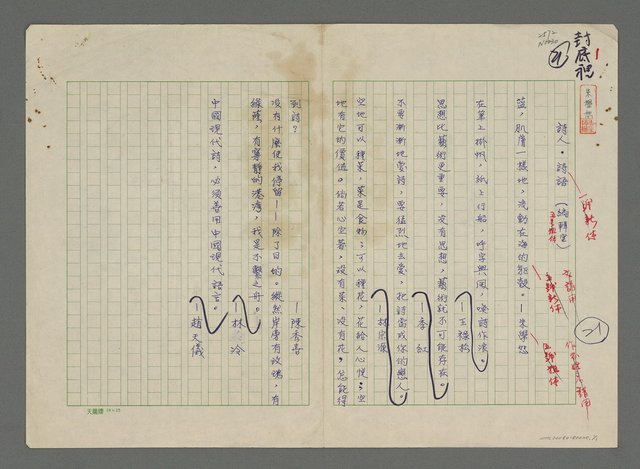 封底裡
詩人・詩語（編輯室）
藍，肌膚一樣地，流動在海的邪裂。—朱學恕
在筆上掛帆，紙上行船，呼字興風，喚詩作浪。
—王祿松
思想比藝術更重要，沒有思想，藝術就不可能存在。
—李 紅
不要漸漸地愛詩，要猛烈地去愛，把詩當成你的戀人。
—林宗源
空地可以種菜，菜是食物；可以種花，花給人心悅；空
地有它的價值。倘若心空著，沒有菜、沒有花，怎能得
到詩？
—陳秀喜
沒有什麼使我停留——除了目的。縱然岸旁有玫瑰，有
綠蔭，有寧靜的港灣，我是不繫之舟。
—林 泠
中國現代詩，必須善用中國現代語言。
—趙天儀
天龍牌 24×25